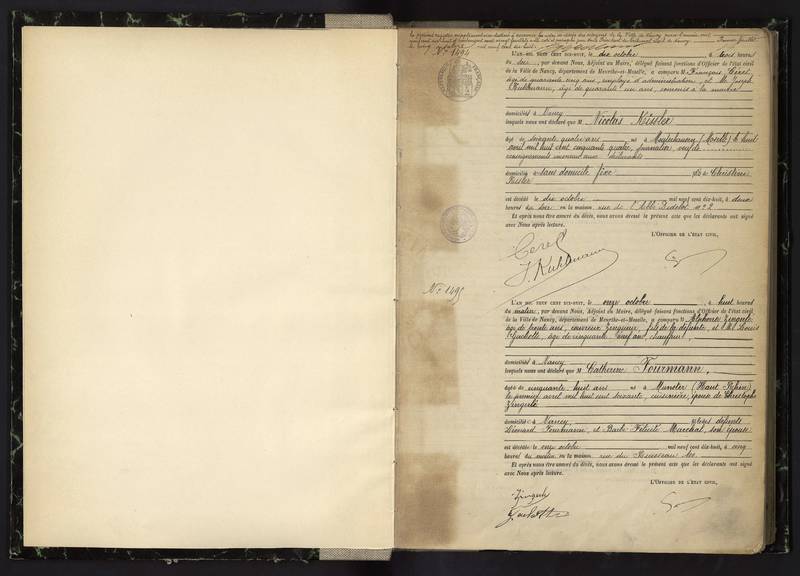 Le présent registre supplémentaire destiné à recevoir les actes de décès des citoyens de la Ville de Nancy pour l'année mil
neuf cent dix-huit
N° 1494
L'AN MIL NEUF CENT DIX-HUIT, le dix octobre, à trois heures
du soir, par devant Nous, Adjoint au Maire, délégué faisant fonctions d'Officier de l'état civil
de la Ville de Nancy, département de Meurthe-et-Moselle, a comparu M François Cerel,
âgé de quarante cinq ans, employé d'administration et M. Joseph
Kuhlmann, âgé de quarante un ans, concierge à la mairie
domiciliés à Nancy
lesquels nous ont déclaré que M Nicolas Kissler
âgé de soixante quatre ans né à (Moselle) le huit
avril mil huit cent cinquante quatre, journalier, veuf de
renseignements inconnus aux déclarants
domicilié à sans domicile fixe fils de Christine
Kissler
est décédé le dix octobre mil neuf cent dix-huit, à deux
heures du soir en la maison rue de l'Abbé Didelot n° 2
Et après nous être assuré du décès, nous avons dressé le présent acte que les déclarants ont signé
avec Nous après lecture.
L'OFFICIER DE L'ÉTAT CIVIL,
Cerel
J. Kuhlmann
N° 1495
L'AN MIL NEUF CENT DIX-HUIT, le onze octobre, à huit heures
du matin, par devant Nous, Adjoint au Maire, délégué faisant fonctions d'Officier de l'état civil
de la Ville de Nancy, département de Meurthe-et-Moselle, a comparu M Alphonse Zingerlé
âgé de trente ans, couvreur zingueur, fils de la défunte, et M. Louis
âgé de cinquante neuf ans, chauffeur,
domiciliés à Nancy
lesquels nous ont déclaré que M Catherine Fourmann,
âgée de cinquante-huit ans née à Munster (Haut Rhin)
le premier avril mil huit cent soixante, cuisinière, épouse de Christophe
Zingerlé
domiciliée à Nancy, fille des défunts
Léonard Fourmann, et Barbe Félicité Marechal, son épouse
est décédée le onze octobre mil neuf cent dix-huit, à cinq
heures du matin en la maison rue du Ruisseau
Et après nous être assuré du décès, nous avons dressé le présent acte que les déclarants ont signé
avec Nous après lecture.
L'OFFICIER DE L'ÉTAT CIVIL,
Zingerlé